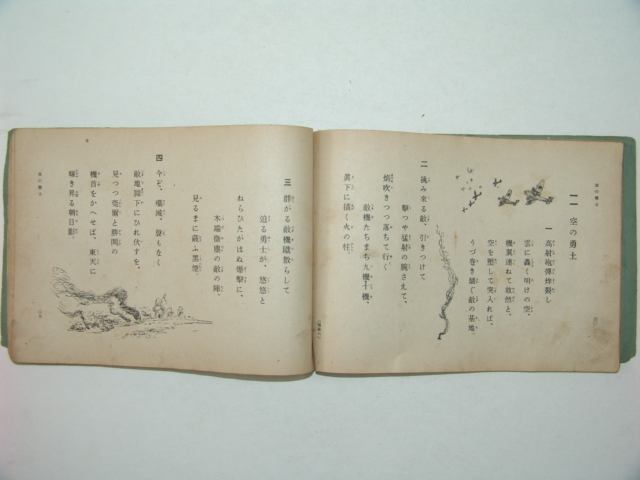 一一 空の勇士
一 高射砲弾炸裂し
雲に轟く明けの空、
機翼連ねて敢然と、
空を圧して突入れば、
うづ巻き騒ぐ敵の基地。
二 挑み来る敵、引きつけて
撃つや猛射の腕さえて、
焔吹きつつ落ちて行く
敵機たちまち九機十機、
眞下に描く火の柱。
三 群がる敵機蹴散らして
迫る勇士が、悠悠と
ねらひたがはぬ爆撃に、
木端微塵の敵の陣、
見るまに蔽ふ黒煙。
四 今ぞ、殲滅、聲もなく
敵地脚下にひれ伏すを、
見つつ莞爾と勝鬨の
機首をかへせば、東天に
輝き昇る朝日影。